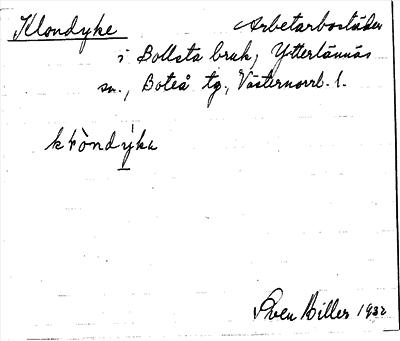 Klondyke Arbetarbostäder
i Bollsta bruk, Ytterlännäs
sn., Boteå tg., Västernorrl. l.
klòndýka
Sven Hiller 1932